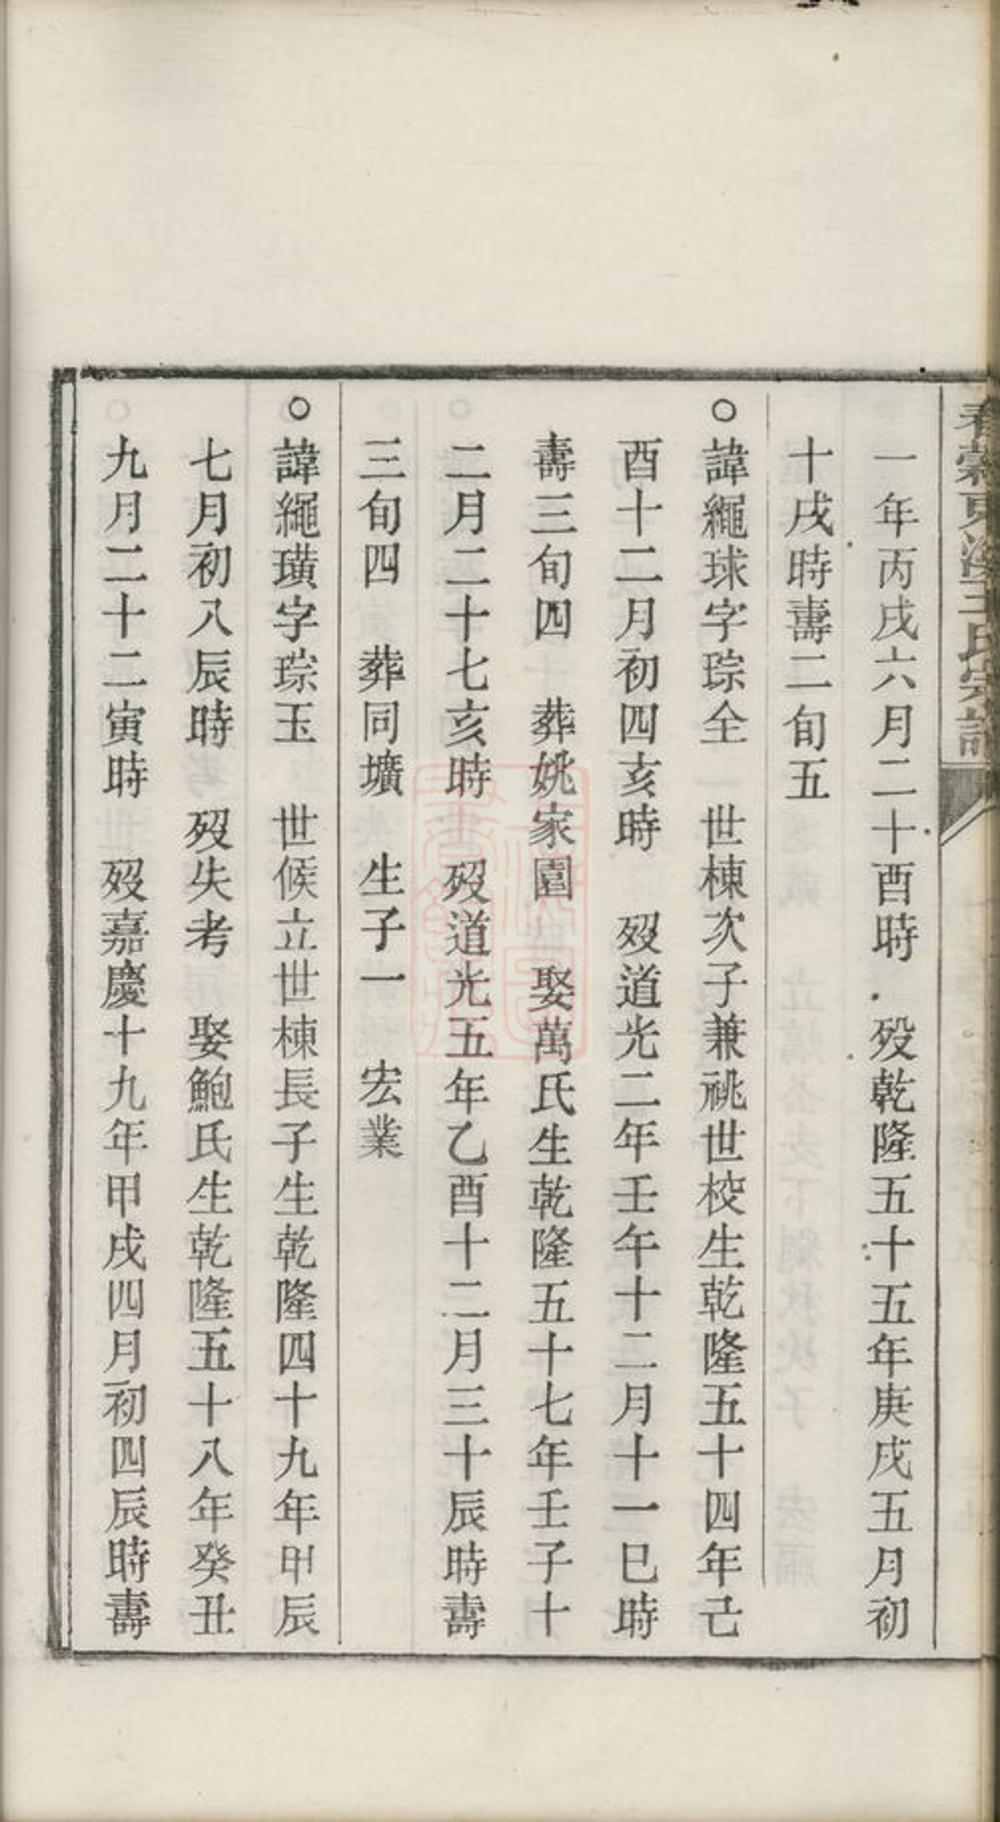 春穀東溪王氏宗譜
一年丙戌六月二十酉時 歿乾隆五十五年庚戌五月初
十戌時壽二旬五
○諱繩球字琮全 世棟次子兼祧世校生乾隆五十四年己
酉十二月初四亥時 歿道光二年壬午十二月十一巳時
壽三旬四 葬姚家園 娶萬氏生乾隆五十七年壬子十
二月二十七亥時 歿道光五年乙酉十二月三十辰時壽
三旬四 葬同壙 生子一 宏業
○諱繩璜字琮玉 世候立世棟長子生乾隆四十九年甲辰
七月初八辰時 歿失考 娶鮑氏生乾隆五十八年癸丑
九月二十二寅時 歿嘉慶十九年甲戌四月初四辰時壽